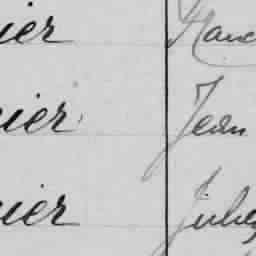 ier Hanc
ier Jean
ier Jules